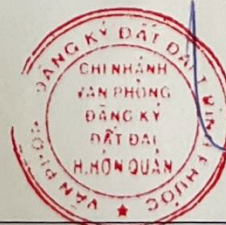 VĂN PHÒNG ĐĂNG KÝ ĐẤT ĐAI T. BÌNH PHƯỚC
CHI NHÁNH
VĂN PHÒNG
ĐĂNG KÝ
ĐẤT ĐAI
H.HỚN QUẢN